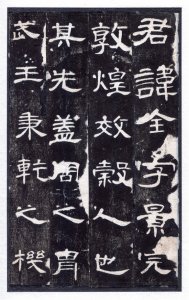 君諱全字景完
敦煌效穀人也
其先蓋周之胄
武王秉乾之機